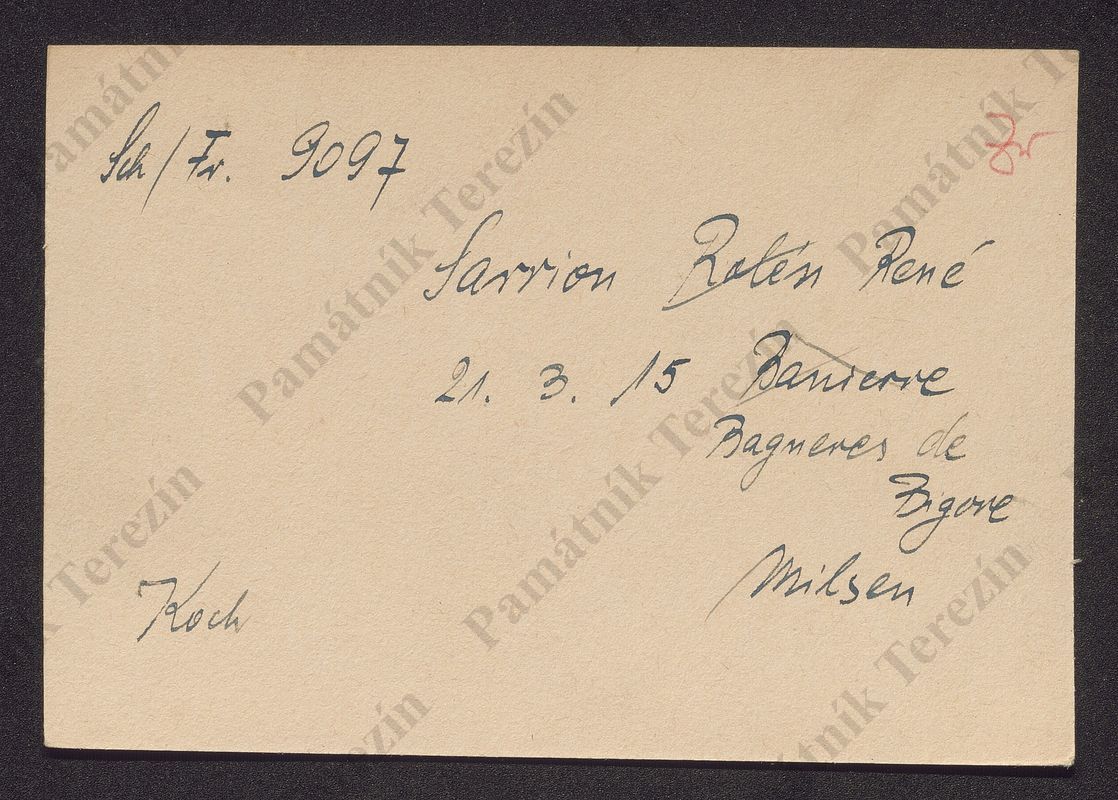 Sch/Fr. 9097
Sarrion Rotén René
21. 3. 15 Banierre
Bagneres de
Bigore
Milsen
Koch
Památník Terezín